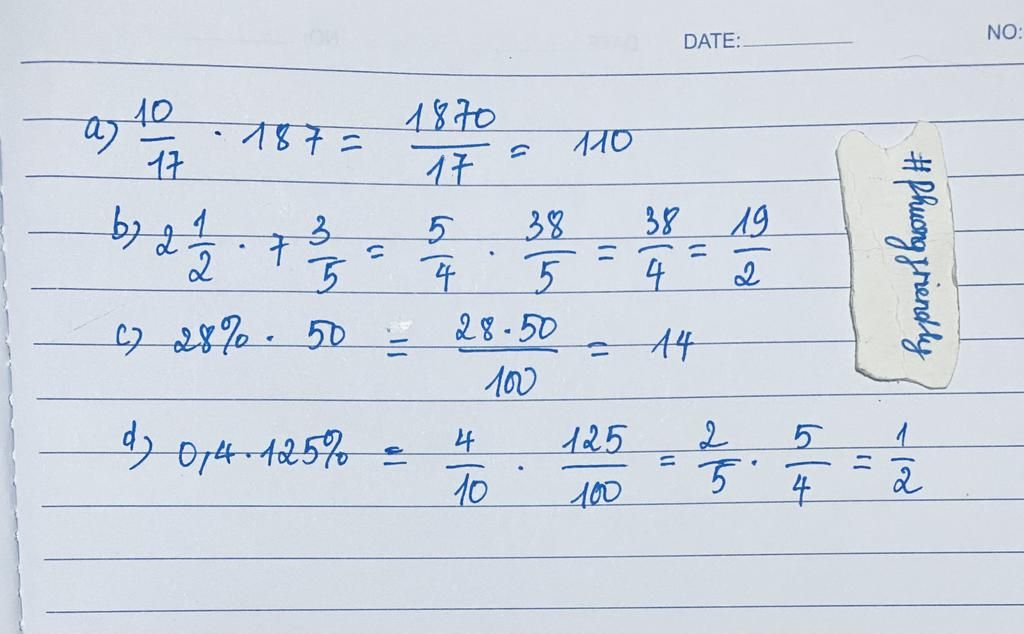 DATE:
NO:
a) 10/17 · 187 = 1870/17 = 110
b) 2 1/2 · 7 3/5 = 5/4 · 38/5 = 38/4 = 19/2
c) 28% · 50 = 28·50/100 = 14
d) 0,4·125% = 4/10 · 125/100 = 2/5 · 5/4 = 1/2
#phuongfriendly